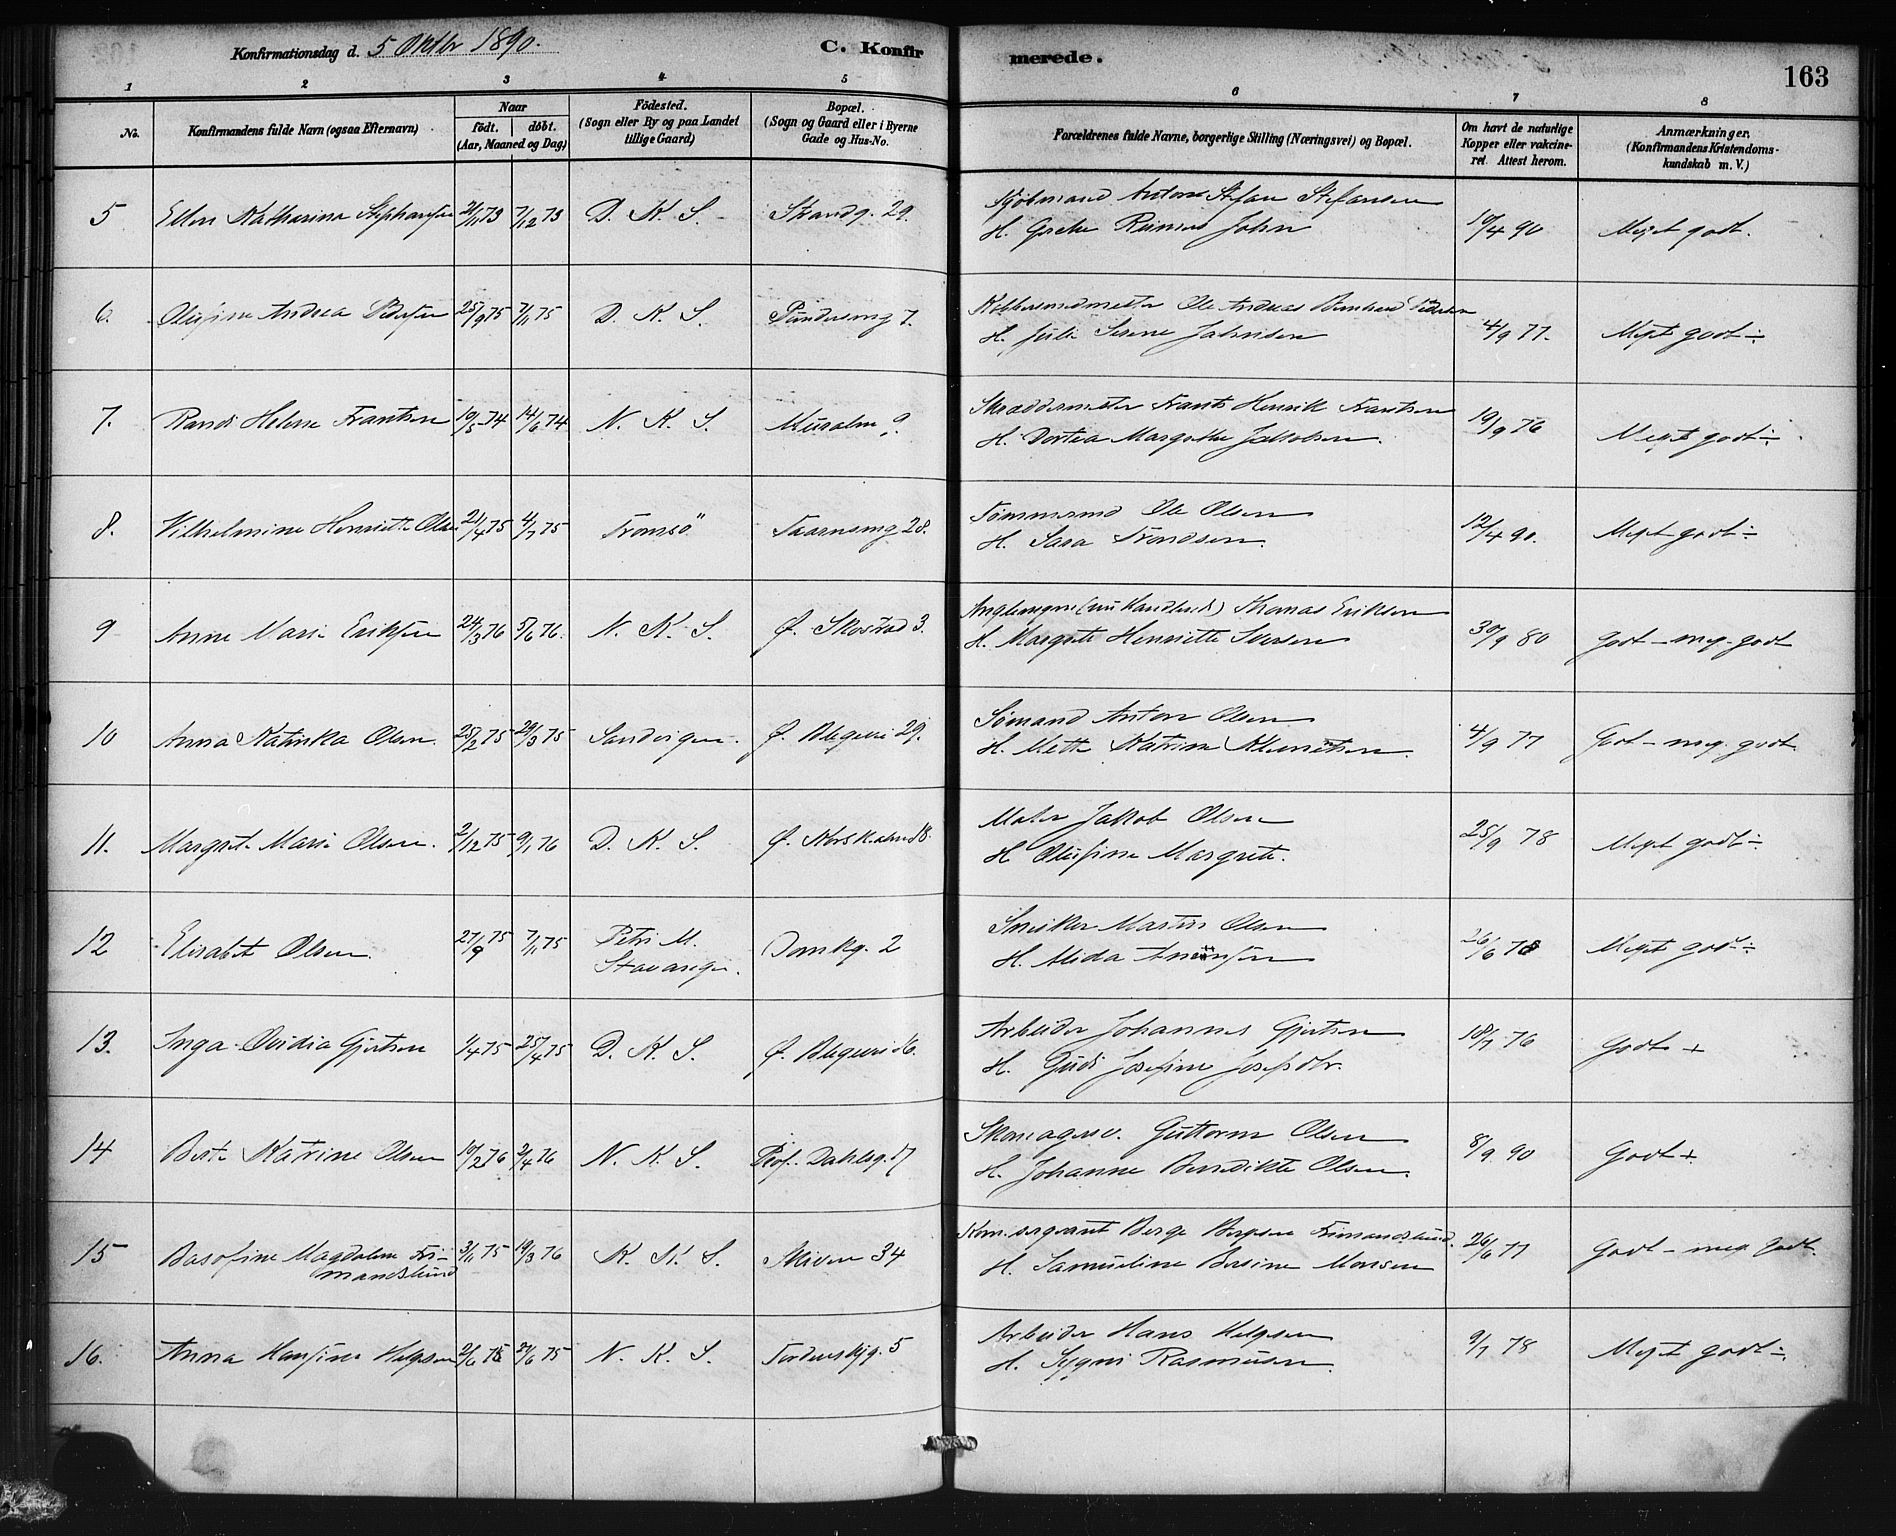 Konfirmationsdag d. 5 Oktbr 1890.
C. Konfirmerede.
163
1 2 3 4 5 6 7 8
No.
Konfirmandens fulde Navn (ogsaa Efternavn)
Naar
født. døbt.
(Aar, Maaned og Dag)
Fødested.
(Sogn eller By og paa Landet
tillige Gaard)
Bopæl.
(Sogn og Gaard eller i Byerne
Gade og Hus-No.
Forældrenes fulde Navne, borgerlige Stilling (Næringsvei) og Bopæl.
Om havt de naturlige
Kopper eller vakcine-
ret Attest herom.
Anmærkninger.
(Konfirmandens Kristendoms-
kundskab m. V.)
5 Ellen Katharina Stephansen 7/12 73 D. K. S. Strandg. 29.
Kjøbmand Anton Stefan Stefansen
H. Grethe Reimers John
19/4 90 Meget godt.
6. Olufine Andrea Pedersen 25/9 75 7/11 75 D. K. S. 7.
Ole Andreas Bernhard Pedersen
H. Julie Serene Jahnsen
4/9 77. Meget godt ÷
7. Randi Helene Frantsen 19/5 74 14/6 74 N. K. S. Muralm 9.
Skræddermester Frants Henrik Frantsen
H. Dortea Margrethe Jakobsen.
19/9 76 Meget godt ÷
8. Vilhelmine Henriette Olsen 21/4 75 4/7 75 Tromsø Taarnsmg 28.
Tømmermd Ole Olsen
H. Sara Trondsen.
12/4 90. Meget godt ÷
9 Anne Marie Eriksen 24/3 76 5/6 76. N. K. S. Ø. Skostræd 3.
(nu Handlende) Thomas Eriksen
H. Margrete Henriette Iversen
30/9 80 Godt - meg. godt
10 Anna Katinka Olsen. 25/2 75 29/3 75 Sandvigen. Ø. Blegevei 29.
Sømand Anton Olsen
H. Mette Katrine
4/9 77 Godt - meg. godt
11. Margret Marie Olsen. 2/12 75 9/1 76 D. K. S. Ø. 18.
Maler Jakob Olsen
H Olufine Margrete.
25/9 78 Meget godt ÷
12 Elisabet Olsen. 27/9 75 7/11 75 Petri M. Domkg. 2
Stavanger.
Snekker Martin Olsen
H. Alida
26/6 78 Meget godt ÷
13. Inga Ovidia Gjertsen 1/4 75 25/4 75 D. K. S. Ø. Blegevei 16.
Arbeider Johannes Gjertsen
H. Guri Josefine Josefsdtr.
18/7 76 Godt +
14 Berte Katrine Olsen 19/2 76 2/4 76 N. K. S. Prof. Dahlsg. 17
Skomagersv. Guttorm Olsen
H. Johanne Benedikte Olsen.
8/9 90 Godt +
15 Basofine Magdalene Fri-
mandslund 3/11 75 19/3 76 K. K. S. Skiven 34
Kom.sergeant Berge Frimandslund.
H. Samueline Bersine Monsen
26/6 77 Godt - meg. godt.
16. Anna Hansine Helgesen 2/6 75 27/6 75 N. K. S. Tordenskjg. 5
Arbeider Hans Helgesen
H. Sygni Rasmusen
9/7 78 Meget godt ÷